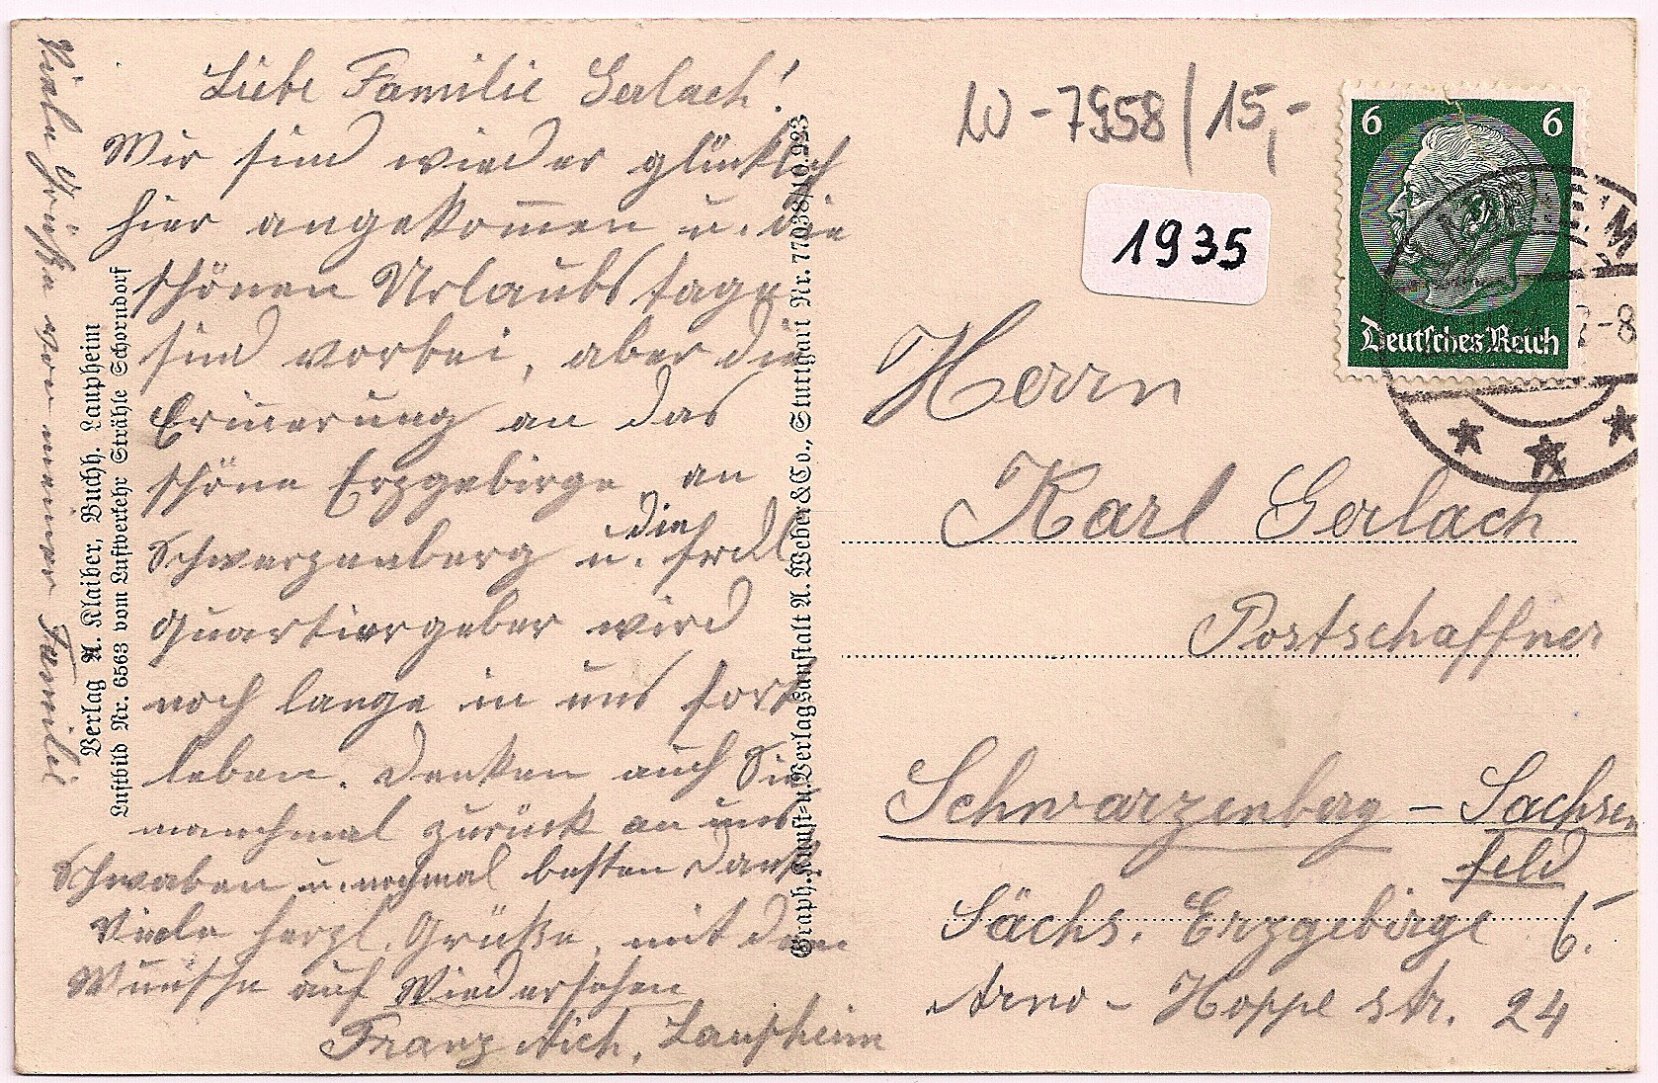 Liebe Familie Gerlach!
Wir sind wieder glücklich
hier angekommen u. die
schönen Urlaubstage
sind vorbei, aber die
Erinnerung an das
schöne Erzgebirge, an
Schwarzenberg u. die frdl
Quartiergeber wird
noch lange in uns fort
leben. Denken auch Sie
manchmal zurück an uns
Schwaben u. nochmal besten Dank.
Viele herzl. Grüße, mit dem
Wunsche auf Wiedersehen
Franz Aich, Laupheim
Viele Grüße von meiner Familie
Verlag A. Klaiber, Buchh. Laupheim
Luftbild Nr. 6563 vom Luftverkehr Strähle Schorndorf
Graph. Kunst- u. Verlagsanstalt A. Weber & Co., Stuttgart Nr. 77038/10.923
W-7958/15,-
1935
6 6
Deutsches Reich
Herrn
Karl Gerlach
Postschaffner
Schwarzenberg - Sachsen
feld
Sächs. Erzgebirge
Arno-Hoppe str. 24